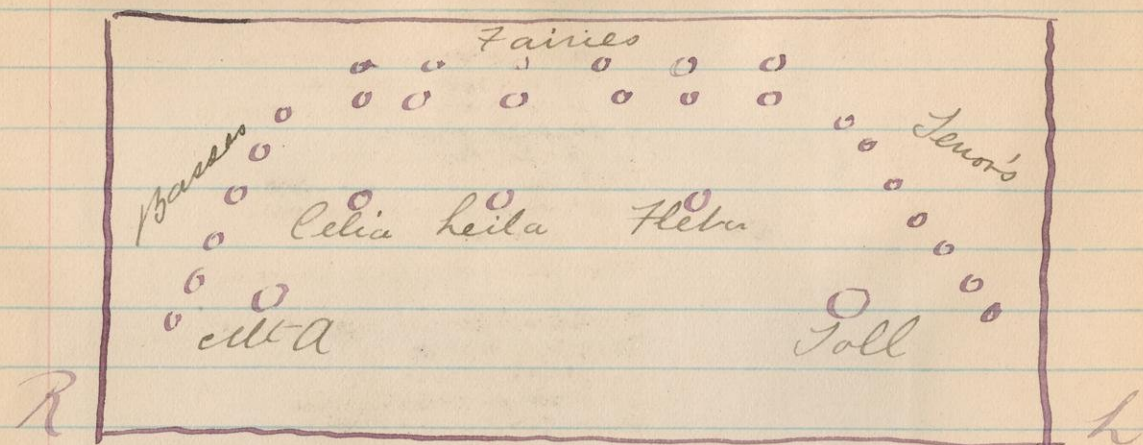 Fairies
Basses
Tenor's
Celia Leila Fleta
Mt-A
Toll
R
L